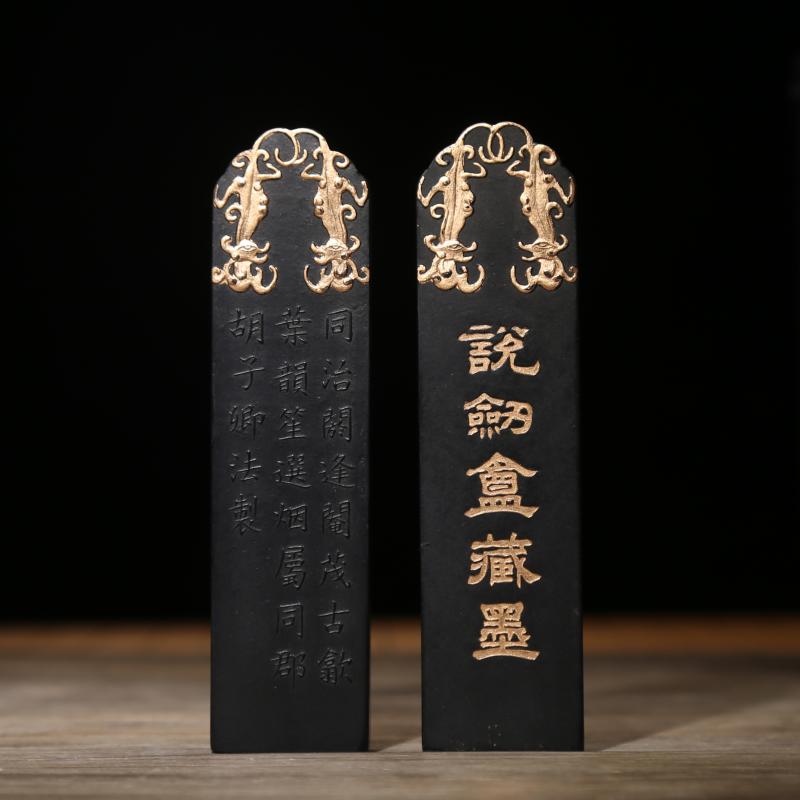 說劒盦藏墨
同治閼逢閹茂古歙
葉韻笙選烟屬同郡
胡子卿法製